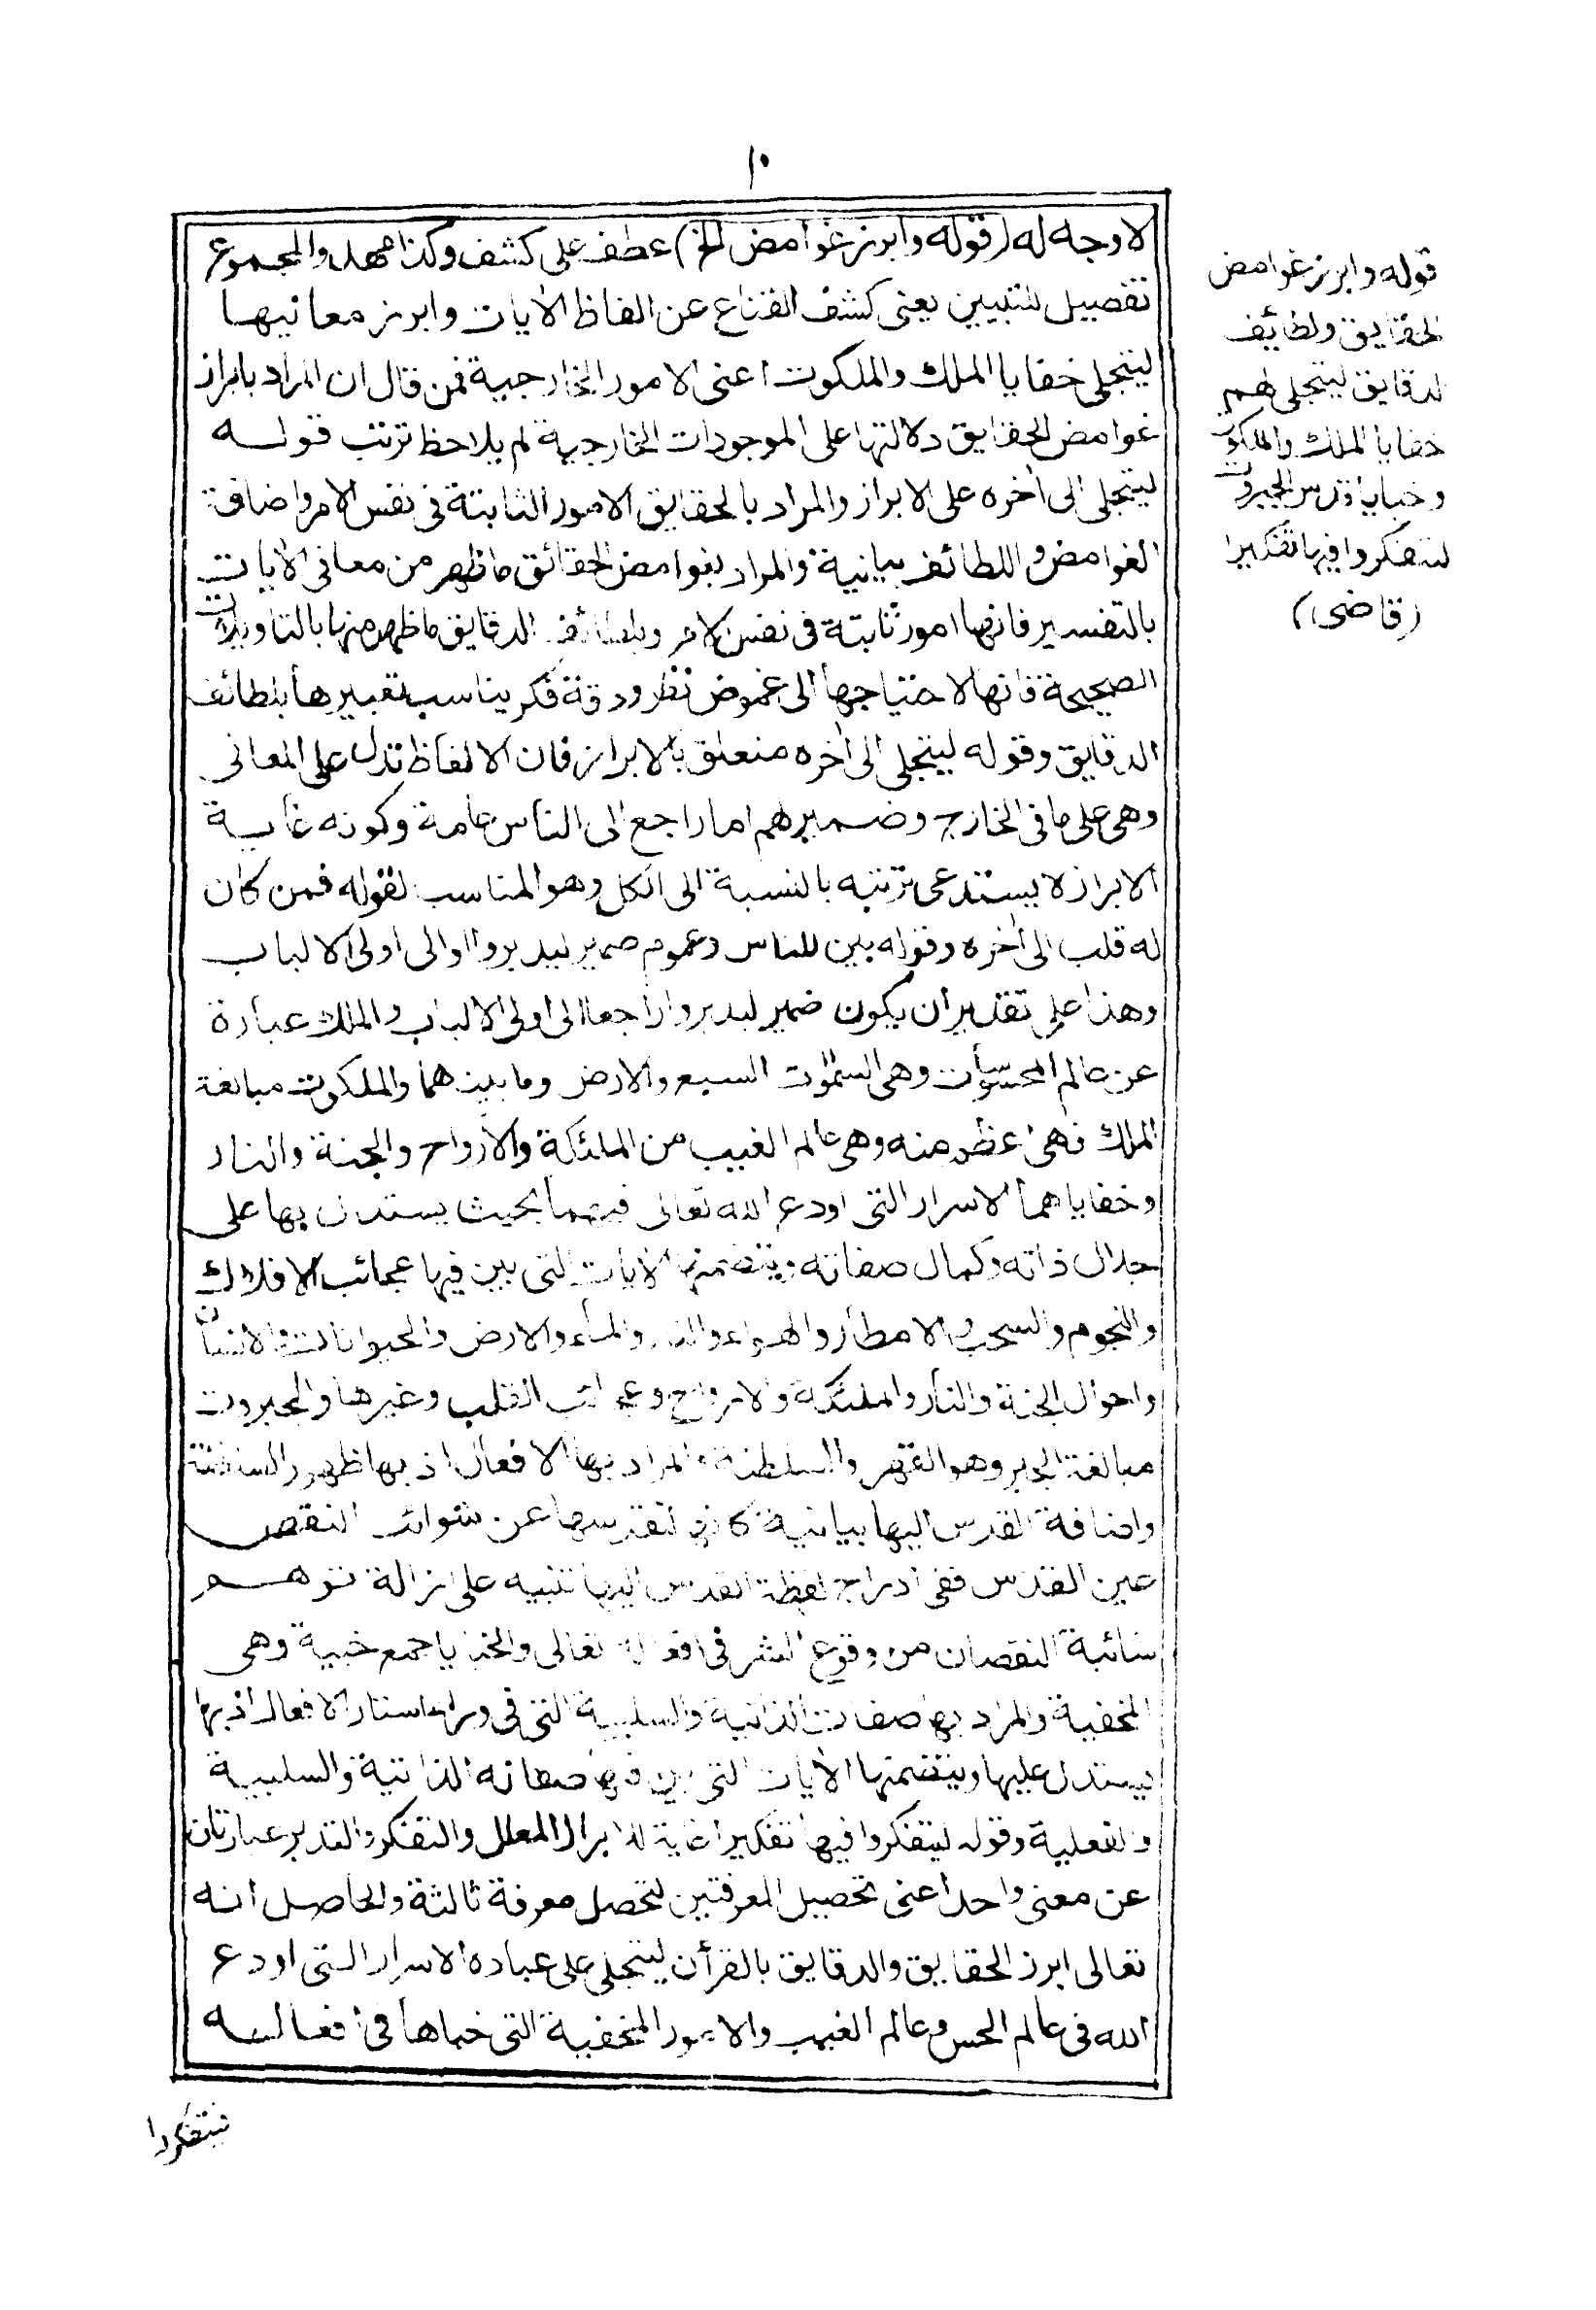 ١٠
لاوجه له (قوله وابرز غوامض الخ) عطف على كشف وكذا مهد والمجموع
تفصيل للتبيين يعنى كشف القناع عن الفاظ الآيات وابرز معانيها
ليتجلى خفايا الملك والملكوت اعنى الامور الخارجية فمن قال ان المراد بابراز
غوامض الحقايق دلالتها على الموجودات الخارجية لم يلاحظ ترتب قوله
ليتجلى الى آخره على الابراز والمراد بالحقايق الامور الثابتة فى نفس الامر واضافة
الغوامض واللطائف بيانية والمراد بغوامض الحقائق ما ظهر من معانى الآيات
بالتفسير فانها امور ثابتة فى نفس الامر وبلطائف الدقايق ما ظهر منها بالتاويلات
الصحيحة فانها لاحتياجها الى غموض نظر ودقة فكر يناسب تعبيرها بلطائف
الدقايق وقوله ليتجلى الى آخره متعلق بالابراز فان الالفاظ تدل على المعانى
وهى على ما فى الخارج وضمير لهم اما راجع الى الناس عامة وكونه غاية
الابراز لا يستدعى ترتبه بالنسبة الى الكل وهو المناسب لقوله فمن كان
له قلب الى آخره وقوله بين للناس وعموم ضمير ليدبروا او الى اولى الالباب
وهذا على تقدير ان يكون ضمير ليدبروا راجعا الى اولى الالباب والملك عبارة
عن عالم المحسوسات وهى السموات السبع والارض وما بينهما والملكوت مبالغة
الملك فهى اعظم منه وهى عالم الغيب من الملئكة والارواح والجنة والنار
وخفاياهما الاسرار التى اودع الله تعالى فيهما بحيث يستدل بها على
جلال ذاته وكمال صفاته ويتضمنها الآيات التى بين فيها عجائب الافلاك
والنجوم والسحب والامطار والهواء والنار والماء والارض والحيوانات والانسان
واحوال الجنة والنار والملئكة والارواح وعجائب القلب وغيرها والجبروت
مبالغة الجبر وهو القهر والسلطنة والمراد بها الافعال اذ بها ظهور السلطنة
واضافة القدس اليها بيانية كانها لتقدسها عن شوائب النقص
عين القدس ففى ادراج لفظة القدس اليها تنبيه على ازالة توهم
شائبة النقصان من وقوع الشر فى افعاله تعالى والخبايا جمع خبية وهى
المخفية والمراد بها صفات الذاتية والسلبية التى فى وراء استار الافعال اذ بها
يستدل عليها ويتضمنها الآيات التى بين فيها صفاته الذاتية والسلبية
والفعلية وقوله ليتفكروا فيها تفكيرا غاية للابراز المعلل والتفكر والتدبر عبارتان
عن معنى واحد اعنى تحصيل المعرفتين لتحصل معرفة ثالثة والحاصل انه
تعالى ابرز الحقايق والدقايق بالقرآن ليتجلى على عباده الاسرار التى اودع
الله فى عالم الحس وعالم الغيب والامور المخفية التى خباها فى افعاله
قوله وابرز غوامض
الحقايق ولطايف
الدقايق ليتجلى لهم
خفايا الملك والملكوت
وخبايا قدس الجبروت
ليتفكروا فيها تفكيرا
(قاضى)
ليتفكروا